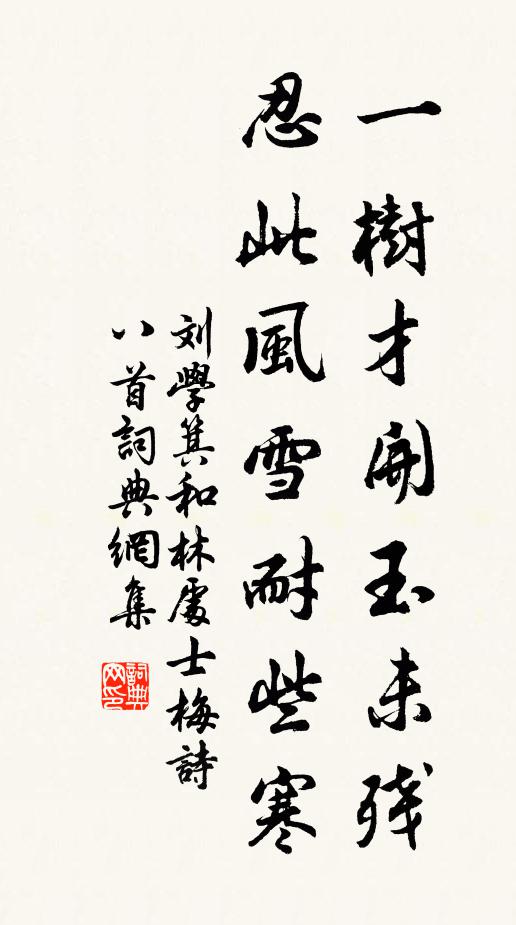 一樹才開玉未残
忍此風雪耐些寒
刘學箕和林處士梅詩
八首詞典網集
詞典网印